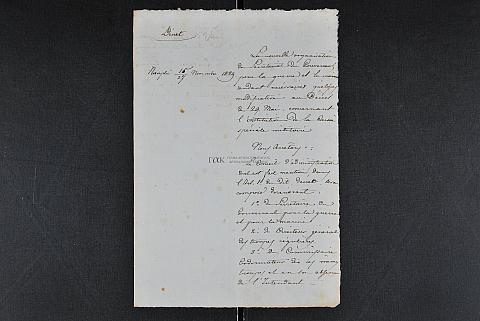 Décret
Nauplie 15/27 Novembre 1829
La nouvelle organisation
du Secrétariat du Gouvernement
pour la guerre et la marine
rendant nécessaires quelques
modifications au Décret
du 29 Mai, concernant
l'institution de la Caisse
spéciale militaire
Nous Arrêtons :
ΓΑΚ
Le Conseil d'administration
dont est fait mention dans
l'Art. 1er du dit décret, sera
composé dorénavant
1° du Secrétaire du
Gouvernement pour la guerre
et pour la marine
2° du Directeur général
des troupes régulières
3° du Commissaire
Ordonnateur de ces mêmes
troupes et en son absence
de l'Intendant